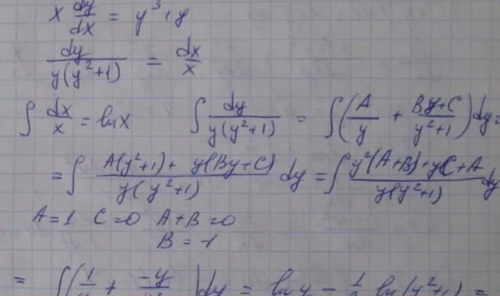 x dy/dx = y³+y
dy/(y(y²+1)) = dx/x
∫ dx/x = ln x   ∫ dy/(y(y²+1)) = ∫(A/y + (By+C)/(y²+1)) dy =
= ∫ (A(y²+1) + y(By+C))/(y(y²+1)) dy = ∫ (y²(A+B)+yC+A)/(y(y²+1)) dy
A=1 C=0 A+B=0
B=-1
= ∫(1/ + -y/ ) dy = ln y - 1/ ln(y²+1) =